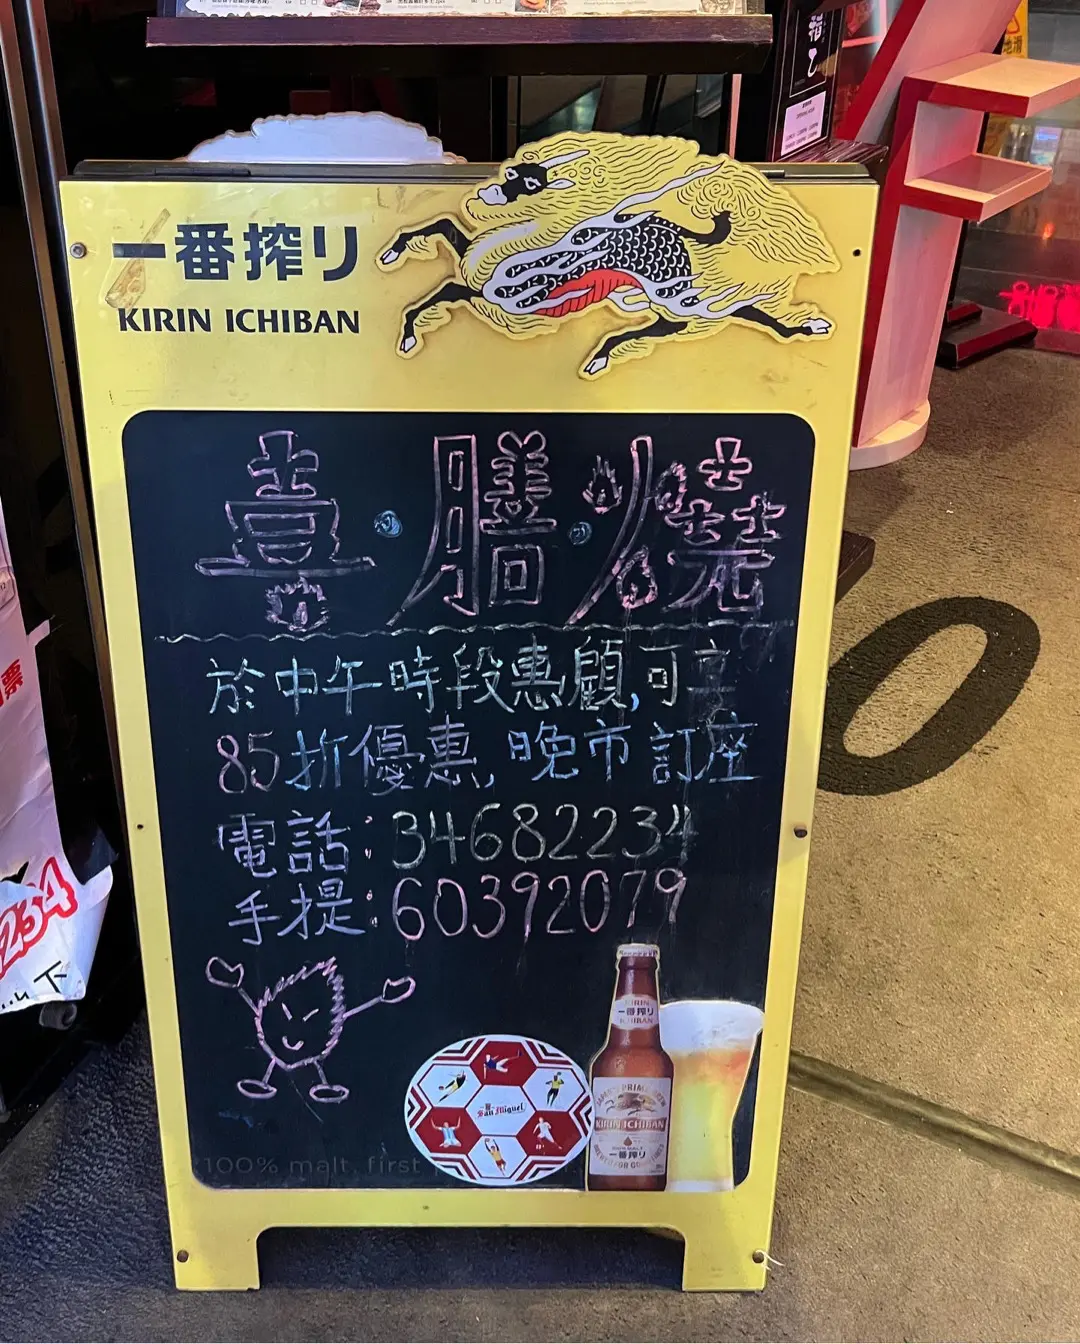 一番搾り
KIRIN ICHIBAN
壹・膳・燒
於中午時段惠顧,可享
85折優惠, 晚市訂座
電話:34682234
手提:60392079
San Miguel
KIRIN
一番搾り
ICHIBAN
KIRIN ICHIBAN
一番搾り
100% malt, first
234
下
票
地滑